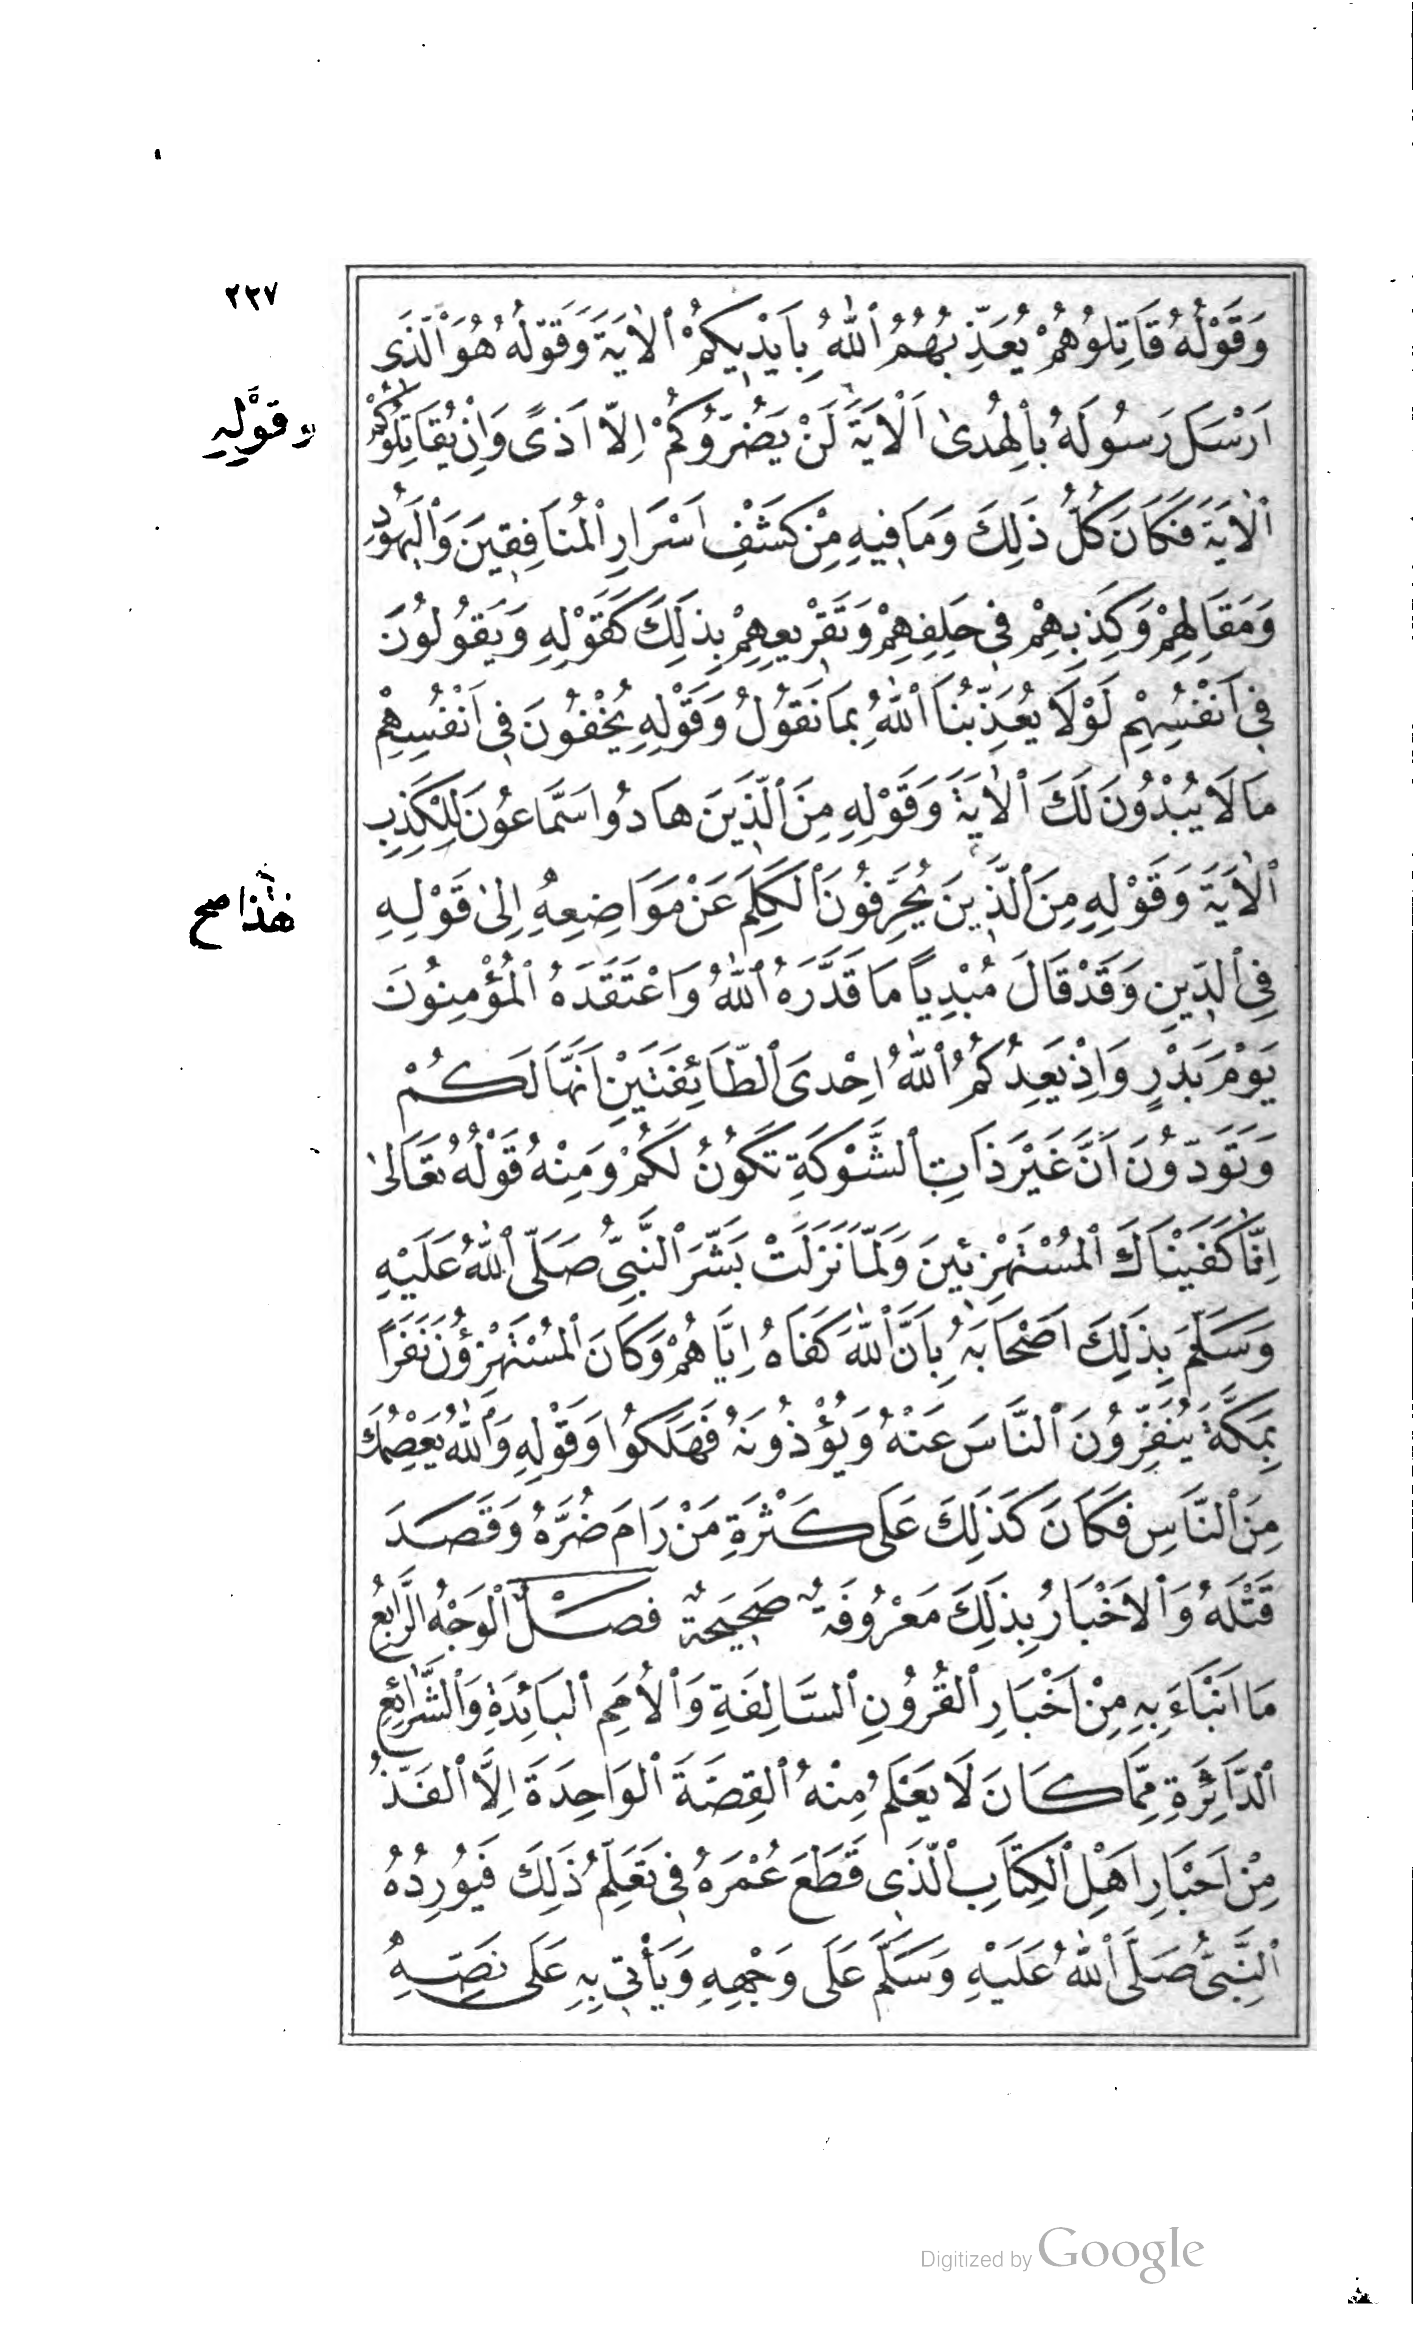 ٢٢٧
وَقَوْلُهُ قَاتِلُوهُمْ يُعَذِّبْهُمُ ٱللّٰهُ بِاَيْدِيكُمْ ٱلْاٰيَةَ وَقَوْلُهُ هُوَ ٱلَّذِى
اَرْسَلَ رَسُولَهُ بِٱلْهُدٰى اَلْآيَةَ لَنْ يَضُرُّوكُمْ اِلَّا اَذًى وَاِنْ يُقَاتِلُوكُمْ
وقَوْلِهِ
ٱلْاٰيَةَ فَكَانَ كُلُّ ذٰلِكَ وَمَا فِيهِ مِنْ كَشْفِ اَسْرَارِ ٱلْمُنَافِقِينَ وَٱلْيَهُودِ
وَمَقَالِهِمْ وَكَذِبِهِمْ فِى حَلِفِهِمْ وَتَقْرِيعِهِمْ بِذٰلِكَ كَقَوْلِهِ وَيَقُولُونَ
فِى اَنْفُسِهِمْ لَوْلَا يُعَذِّبُنَا ٱللّٰهُ بِمَا نَقُولُ وَقَوْلِهِ يُخْفُونَ فِى اَنْفُسِهِمْ
مَا لَا يُبْدُونَ لَكَ ٱلْاٰيَةَ وَقَوْلِهِ مِنَ ٱلَّذِينَ هَادُوا سَمَّاعُونَ لِلْكَذِبِ
ٱلْاٰيَةَ وَقَوْلِهِ مِنَ ٱلَّذِينَ يُحَرِّفُونَ ٱلْكَلِمَ عَنْ مَوَاضِعِهِ اِلٰى قَوْلِهِ
هٰذا صح
فِى ٱلدِّينِ وَقَدْ قَالَ مُبْدِياً مَا قَدَّرَهُ ٱللّٰهُ وَاعْتَقَدَهُ ٱلْمُؤْمِنُونَ
يَوْمَ بَدْرٍ وَاِذْ يَعِدُكُمُ ٱللّٰهُ اِحْدَى ٱلطَّائِفَتَيْنِ اَنَّهَا لَكُمْ
وَتَوَدُّونَ اَنَّ غَيْرَ ذَاتِ ٱلشَّوْكَةِ تَكُونُ لَكُمْ وَمِنْهُ قَوْلُهُ تَعَالٰى
اِنَّا كَفَيْنَاكَ ٱلْمُسْتَهْزِئِينَ وَلَمَّا نَزَلَتْ بَشَّرَ ٱلنَّبِىُّ صَلَّى ٱللّٰهُ عَلَيْهِ
وَسَلَّمَ بِذٰلِكَ اَصْحَابَهُ بِاَنَّ ٱللّٰهَ كَفَاهُ اِيَّاهُمْ وَكَانَ ٱلْمُسْتَهْزِؤُنَ نَفَرًا
بِمَكَّةَ يُنَفِّرُونَ ٱلنَّاسَ عَنْهُ وَيُؤْذُونَهُ فَهَلَكُوا وَقَوْلِهِ وَٱللّٰهُ يَعْصِمُكَ
مِنَ ٱلنَّاسِ فَكَانَ كَذٰلِكَ عَلَى كَثْرَةِ مَنْ رَامَ ضُرَّهُ وَقَصَدَ
قَتْلَهُ وَٱلْاَخْبَارُ بِذٰلِكَ مَعْرُوفَةٌ صَحِيحَةٌ فصل ٱلْوَجْهُ ٱلرَّابِعُ
مَا اَنْبَاَءَ بِهِ مِنْ اَخْبَارِ ٱلْقُرُونِ ٱلسَّالِفَةِ وَٱلْاُمَمِ ٱلْبَائِدَةِ وَٱلشَّرَائِعِ
ٱلدَّاثِرَةِ مِمَّا كَانَ لَا يَعْلَمُ مِنْهُ ٱلْقِصَّةَ ٱلْوَاحِدَةَ اِلَّا ٱلْفَذُّ
مِنْ اَحْبَارِ اَهْلِ ٱلْكِتَابِ ٱلَّذِى قَطَعَ عُمْرَهُ فِى تَعَلُّمِ ذٰلِكَ فَيُورِدُهُ
ٱلنَّبِىُّ صَلَّى ٱللّٰهُ عَلَيْهِ وَسَلَّمَ عَلَى وَجْهِهِ وَيَأْتِى بِهِ عَلَى نَصِّهِ
Digitized by Google